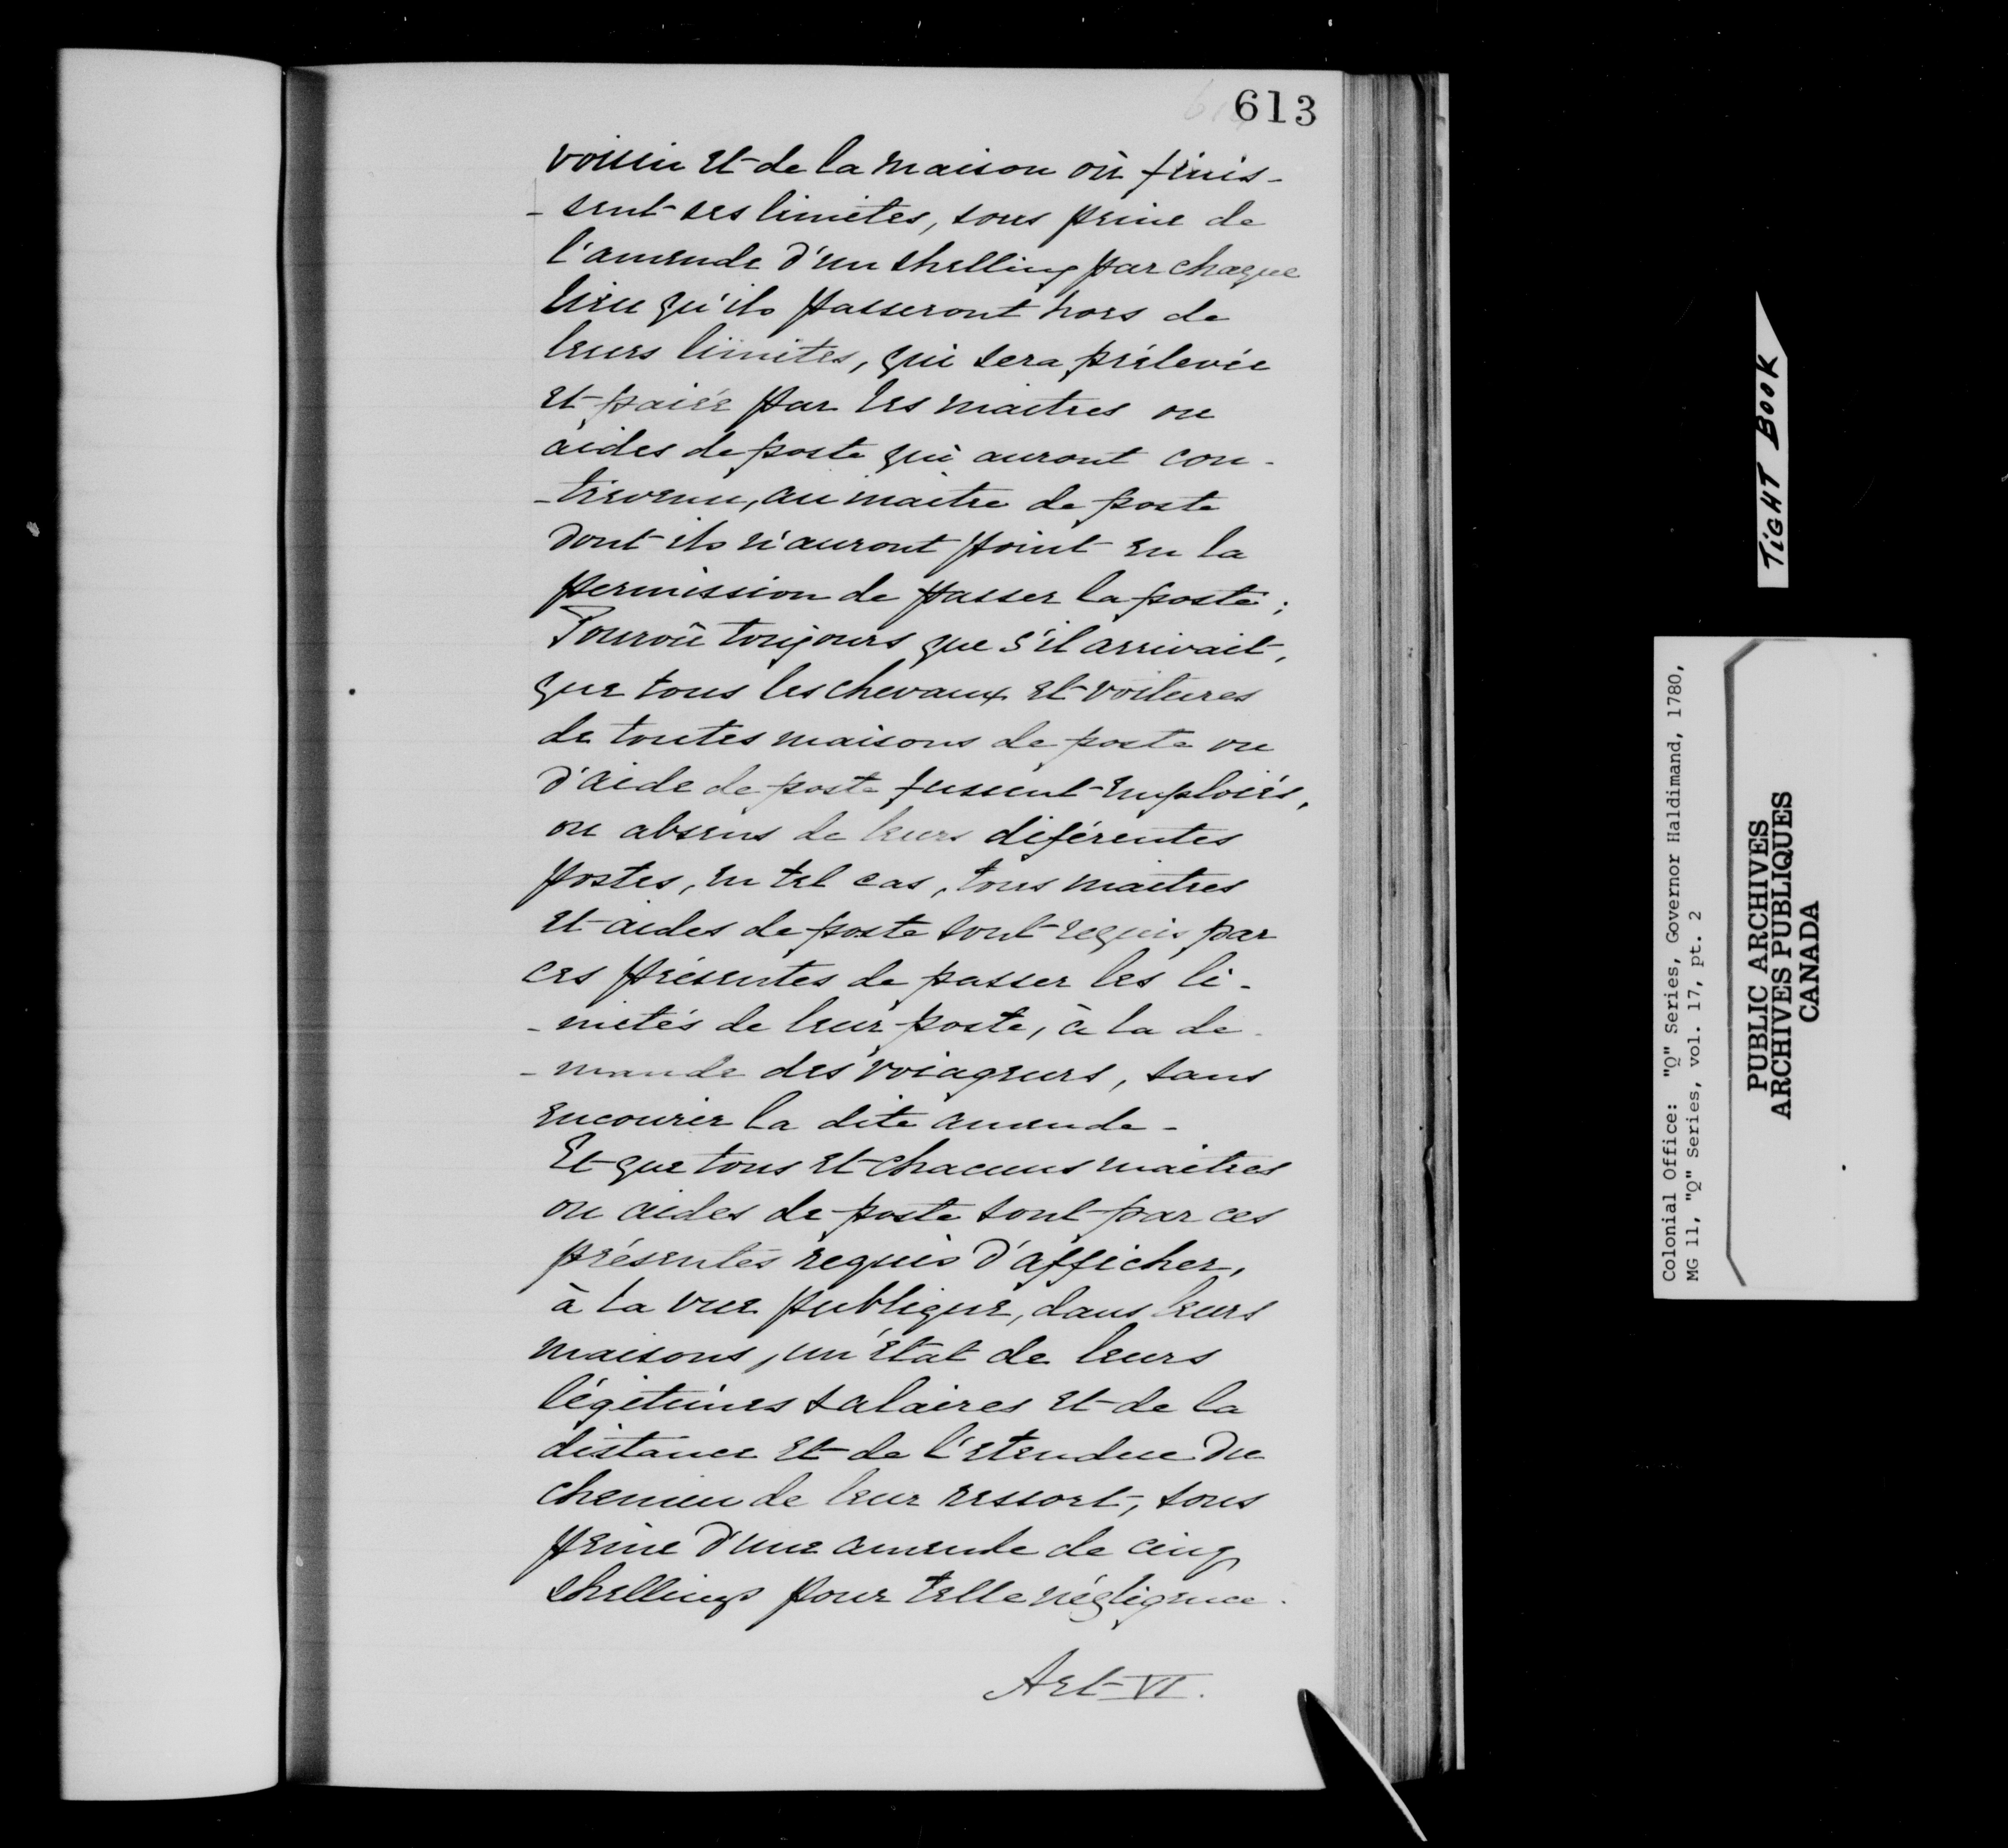 613
voisin et de la maison où finis-
-sent ses limites, sous peine de
l'amende d'un shelling par chaque
lieu qu'ils passeront hors de
leurs limites, qui sera prélevée
et paiée par les maitres ou
aides de poste qui auront con-
-trevenu, au maitre de poste
dont ils n'auront point eu la
permission de passer la poste;
Pourvû toujours que s'il arrivait,
que tous les chevaux et voitures
de toutes maisons de poste ou
d'aide de poste fussent emploiés,
ou absens de leurs diférentes
postes, en tel cas, tous maitres
et aides de poste sont requis par
ces présentes de passer les li-
-mites de leur poste, à la de-
-mande des voiageurs, sans
encourir la dite amende-
Et que tous et chacuns maitres
ou aides de poste sont par ces
présentes requis d'afficher,
à la vue publique, dans leurs
maisons, un état de leurs
légitimes salaires et de la
distance et de l'étendue du
chemin de leur ressort, sous
peine d'une amende de cinq
shellings pour telle négligence.
Art VI.
TIGHT BOOK
Colonial Office: "Q" Series, Governor Haldimand, 1780,
MG 11, "Q" Series, vol. 17, pt. 2
PUBLIC ARCHIVES
ARCHIVES PUBLIQUES
CANADA